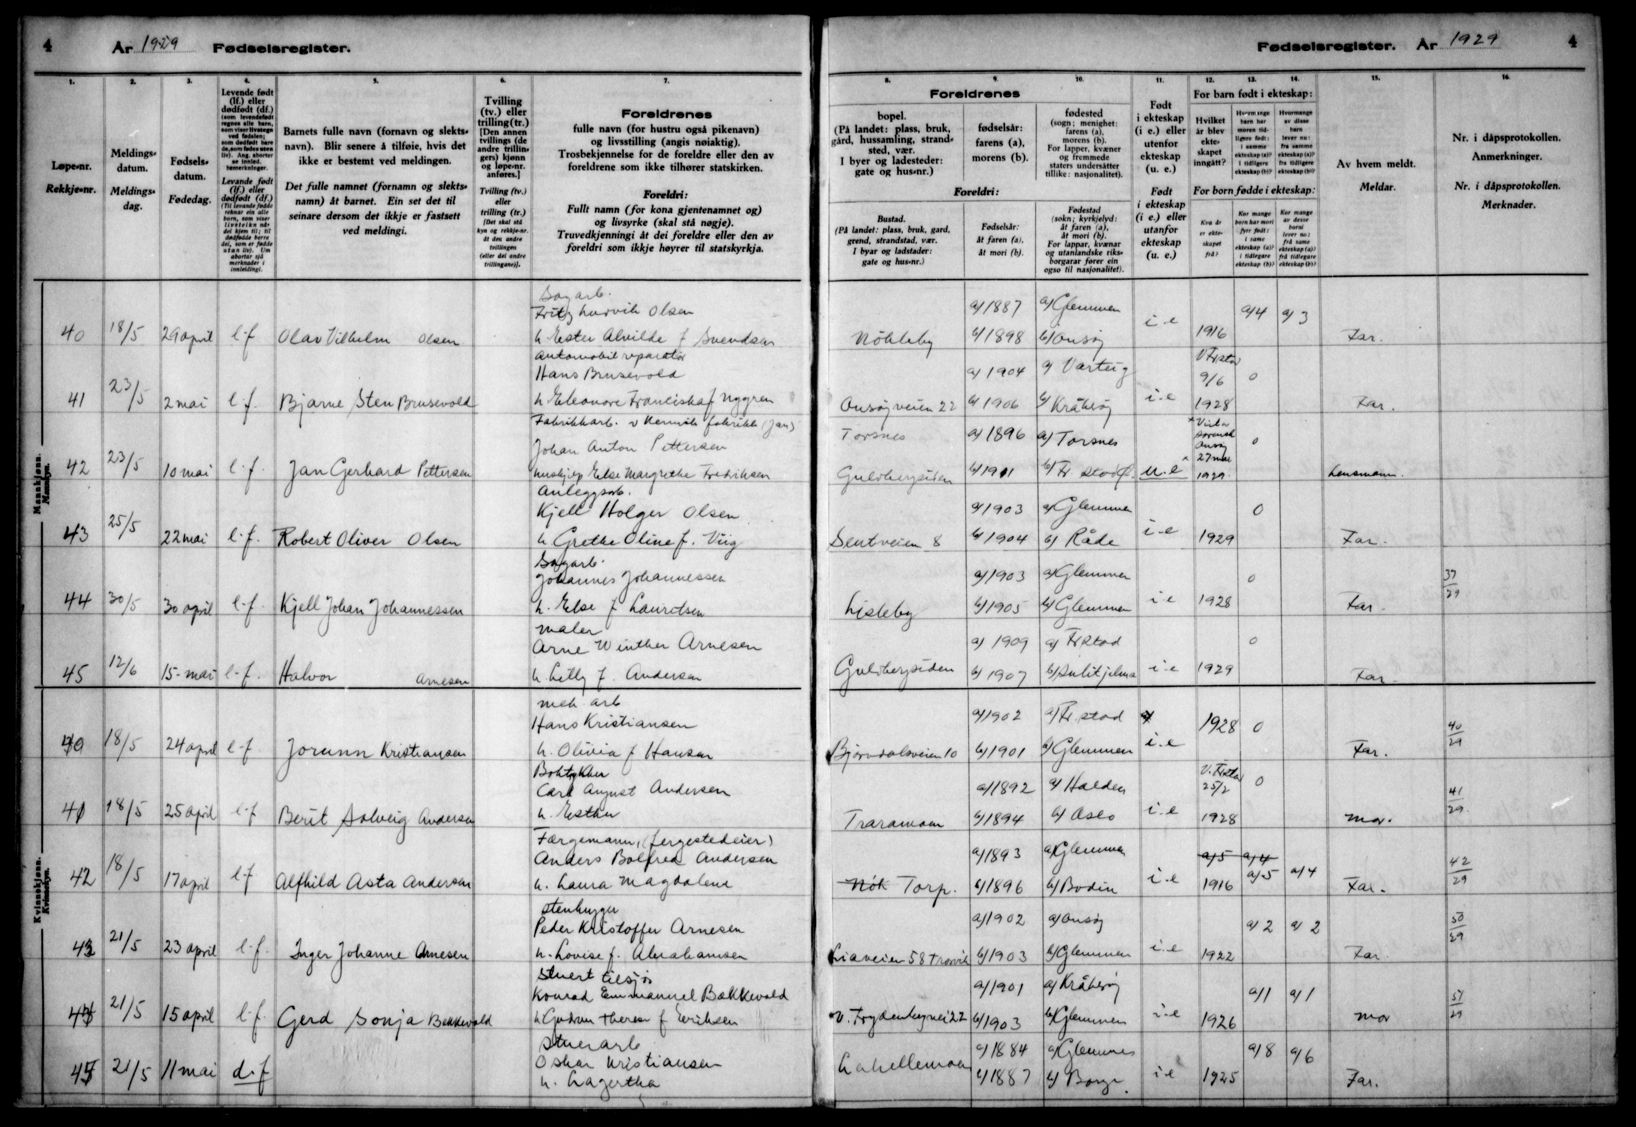 4 År 1929 Fødselsregister.
Fødselsregister. År 1929 4
1. 2. 3. 4. 5. 6. 7.
8. 9. 10. 11. 12. 13. 14. 15. 16.
Løpe-nr.
Rekkje-nr.
Meldings-
datum.
Meldings-
dag.
Fødsels-
datum.
Fødedag.
Levende født
(lf.) eller
dødfødt (df.)
Barnets fulle navn (fornavn og slekts-
navn). Blir senere å tilføie, hvis det
ikke er bestemt ved meldingen.
Det fulle namnet (fornamn og slekts-
namn) åt barnet. Ein set det til
seinare dersom det ikkje er fastsett
ved meldingi.
Tvilling
(tv.) eller
trilling (tr.)
[Den annen
tvillings (de
andre trillin-
gers) kjønn
og løpe-nr.
anføres.]
Tvilling (tv.)
eller
trilling (tr.)
Foreldrenes
fulle navn (for hustru også pikenavn)
og livsstilling (angis nøiaktig).
Trosbekjennelse for de foreldre eller den av
foreldrene som ikke tilhører statskirken.
Foreldri:
Fullt namn (for kona gjentenamnet og)
og livsyrke (skal stå nøgje).
Truvedkjenningi åt dei foreldre eller den av
foreldri som ikkje høyrer til statskyrkja.
Foreldrenes
bopel.
(På landet: plass, bruk,
gård, hussamling, strand-
sted, vær.
I byer og ladesteder:
gate og hus-nr.)
fødselsår:
farens (a),
morens (b).
fødested
(sogn; menighet:
farens (a),
morens (b).
For lapper, kvæner
og fremmede
staters undersåtter
tillike: nasjonalitet).
Foreldri:
Bustad.
(På landet: plass, bruk, gard,
grend, strandstad, vær.
I byar og ladstader:
gate og hus-nr.)
Fødselsår:
åt faren (a),
åt mori (b).
Fødestad
(sokn; kyrkjelyd:
åt faren (a),
åt mori (b).
For lappar, kvænar
og utanlandske riks-
borgarar fører ein
ogso til nasjonalitet).
Født
i ekteskap
(i e.) eller
utenfor
ekteskap
(u. e.)
Født
i ekteskap
(i e.) eller
utanfor
ekteskap
(u. e.)
For barn født i ekteskap:
Hvilket
år blev
ekte-
skapet
inngått?
For born fødde i ekteskap:
Av hvem meldt.
Meldar.
Nr. i dåpsprotokollen.
Anmerkninger.
Nr. i dåpsprotokollen.
Merknader.
Mannkjønn.
Mannkyn.
Sagarb.
Fritz Ludvik Olsen a) 1887 a) Glemmen a) 4 a) 3
40 18/5 29 april l-f Olav Vilhelm Olsen h. Ester Alvilde f Svendsen Nökleby b) 1898 b) Onsøy i.e 1916 Far.
Automobil reparatör
Hans Brusevold a) 1904 a) Varteig V Frstad 9/6 0
41 23/5 2 mai l-f. Bjarne Sten Brusevold h. Eleonore Franciska f Nygren Onsøyveien 22 b) 1906 b) Kråkerøy i-e 1928 Far.
Johan Anton Pettersen Torsnes a) 1896 a) Torsnes 0
42 23/5 10 mai l-f. Jan Gerhard Pettersen Else Margrethe Fredriksen Gulbergsiden b) 1901 b) Fr. stad u.e 27 mai 1929 Lensmann.
Anleggsarb.
Kjell Holger Olsen a) 1903 a) Glemmen 0
43 25/5 22 mai l-f. Robert Oliver Olsen h. Grethe Oline f. Viig b) 1904 b) Råde i-e 1929 Far.
Sagarb.
Johannes Johannessen a) 1903 a) Glemmen 0 37/29
44 30/5 30 april l-f. Kjell Johan Johannessen h. Else f Lauritsen Lisleby b) 1905 b) Glemmen i-e 1928 Far.
Maler
Arne Winther Arnesen a) 1909 a) Fr.stad 0
45 12/6 15-mai l-f. Halvor Arnesen h. Lilly f. Andersen Gulbergsiden b) 1907 b) Sulitjelma i-e 1929 Far.
Kvinnekjønn.
Kvinnekyn.
mek. arb
Hans Kristiansen a) 1902 a) Fr. stad 1928 0 40/29
40 18/5 24 april l-f Jorunn Kristiansen h. Olivia f Hansen Bjørndalsveien 10 b) 1901 b) Glemmen i-e Far.
Boktrykker
Carl August Andersen a) 1892 a) Halden V. Frstad 25/2 0 41/29
41 18/5 25 april l-f Berit Solveig Andersen h. Esther Traramoen b) 1894 b) Oslo i-e 1928 mor.
Færgemann, (fergestedeier)
Anders Bolfred Andersen a) 1893 a) Glemmen a) 5 a) 4 42/29
42 18/5 17 april l-f Alfhild Asta Andersen h. Laura Magdalena Nök Torp. b) 1896 b) Bodin i-e 1916 a) 5 a) 4 Far.
Stenhugger
Peder Kristoffer Arnesen a) 1902 a) Onsøy a) 2 a) 2 50/29
43 21/5 23 april l-f. Inger Johanne Arnesen h. Lovise f. Abrahamsen Liaveien 58 Trosvik b) 1903 b) Glemmen i-e 1922 Far.
Stuert tilsjøs
Konrad Emmanuel Bakkevold a) 1901 a) Kråkerøy a) 1 a) 1 57/29
44 21/5 15 april l-f. Gerd Sonja Bakkevold h. Gudrun Therese f Eriksen V. Frydenbergvei 22 b) 1903 b) Glemmen i-e 1926 mor
Stuerarb
Oskar Kristiansen a) 1884 a) Glemmen a) 8 a) 6
45 21/5 11 mai d-f h. Lagertha Lahellemoen b) 1887 b) Borge i-e 1925 Far.